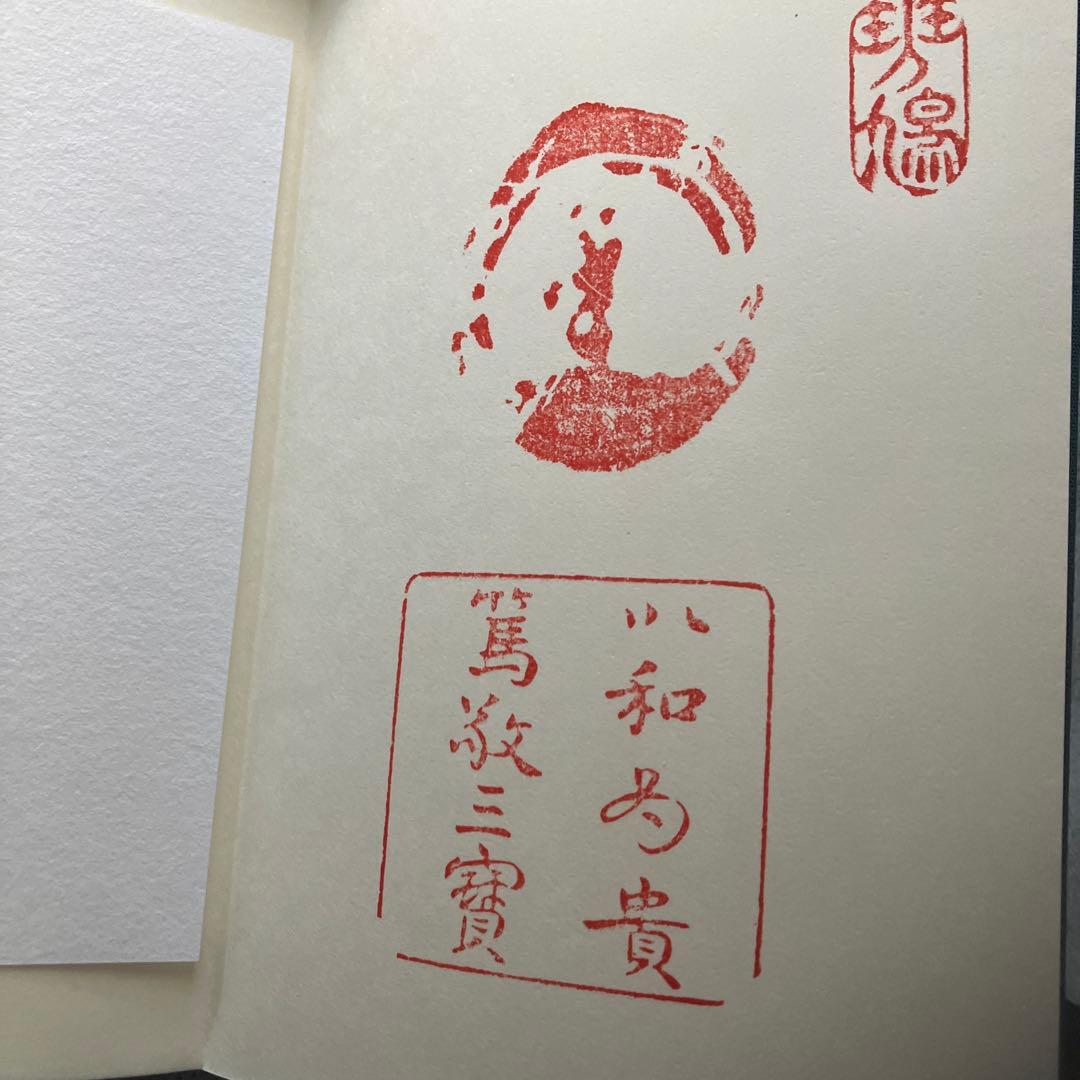 斑鳩
以和為貴
篤敬三寶